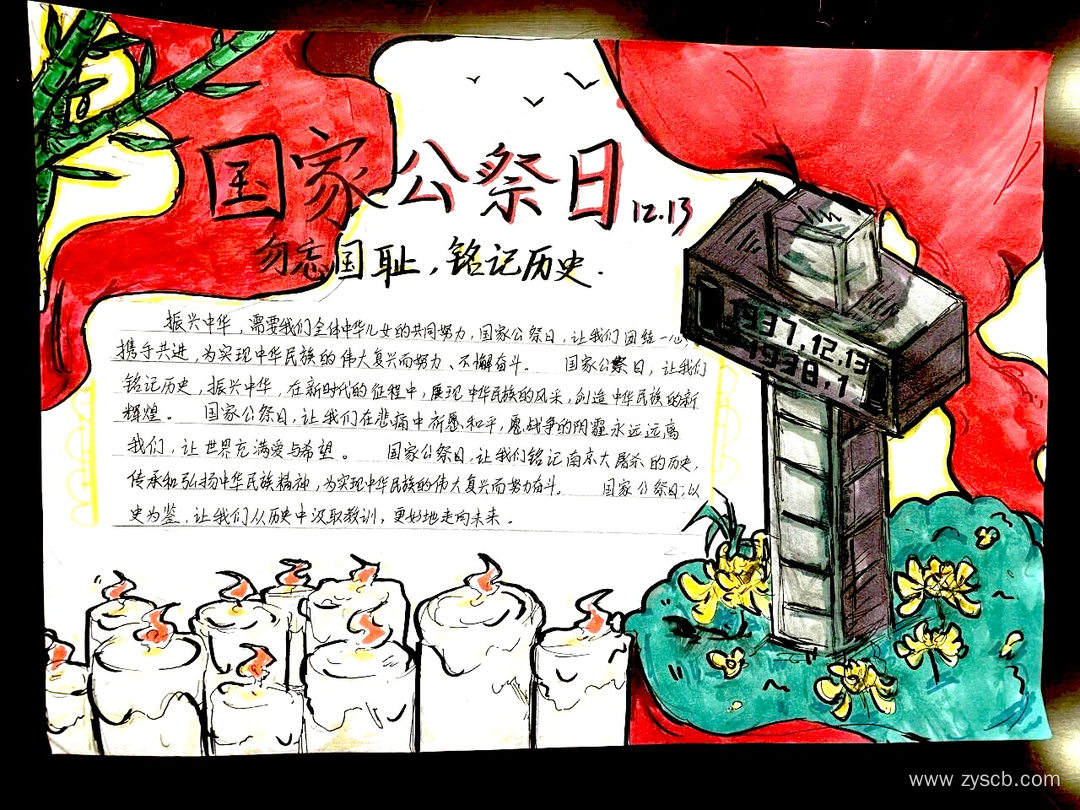 国家公祭日 12.13
勿忘国耻，铭记历史.
振兴中华，需要我们全体中华儿女的共同努力，国家公祭日，让我们团结一心，
携手共进，为实现中华民族的伟大复兴而努力、不懈奋斗。 国家公祭日，让我们
铭记历史，振兴中华，在新时代的征程中，展现中华民族的风采，创造中华民族的新
辉煌。 国家公祭日，让我们在悲痛中祈愿和平，愿战争的阴霾永远远离
我们，让世界充满爱与希望。 国家公祭日，让我们铭记南京大屠杀的历史，
传承和弘扬中华民族精神，为实现中华民族的伟大复兴而努力奋斗。 国家公祭日，以
史为鉴，让我们从历史中汲取教训，更好地走向未来。
1937.12.13
1938.1
www.zyscb.com